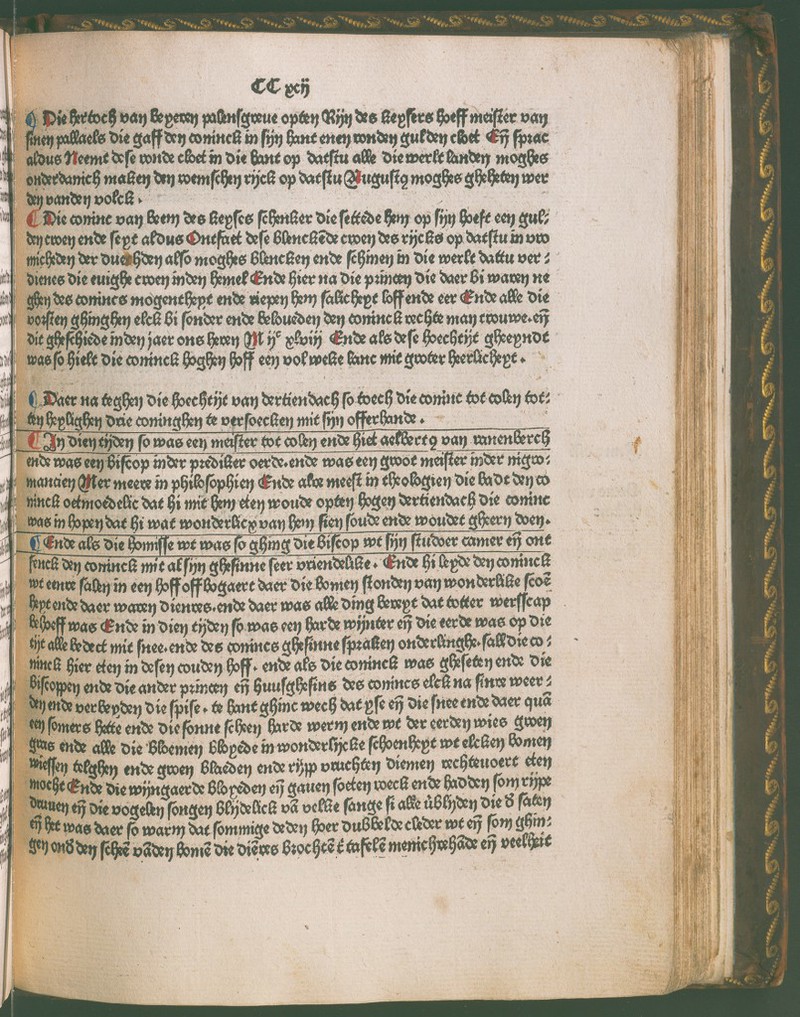 CC xcij
Die hertoch van beyeren palensgreue opten Rijn des keysers hoeff meister van
sinen pallaels die gaff den coninck in sijn hant enen ronden gulden cloet Eñ sprac
aldus Neemt dese ronde cloet in die hant op datstu alle die werlt landen moghes
onderdanich maken den roemschen rijck op datstu Augustꝰ moghes gheheten wer
den vanden volck .
Die coninc van beem des keyses schenker die settēde hem op sijn hoeft een gul⸗
den croen ende seyt aldus Ontfaet dese blenckēde croen des rijcks op datstu in vro
micheden der duechden also moghes blencken ende schinen in die werlt dattu ver⸗
dienes die euighe croen inden hemel Ende hier na die princen die daer bi waren ne
ghen des conincs mogentheyt ende riepen hem salicheyt loff ende eer Ende alle die
vorsten ghinghen elck bi sonder ende beloueden den coninck rechte man trouwe.eñ
dit gheschiede inden jaer ons heren M ijᶜ xlviij Ende als dese hoechtijt gheeyndt
was so hielt die coninck hoghen hoff een vol weke lanc mit groter heerlicheyt .
Daer na teghen die hoechtijt van dertiendach so toech die coninc tot colen tot⸗
ten heylighen drie coninghen te versoecken mit sijn offerhande .
In dien tijden so was een meister tot colen ende hiet aelbertꝰ van ranenberch
ende was een biscop inder prediker oerde.ende was een groot meister inder nigro⸗
mancien Mer meere in philosophien Ende alre meest in theologien die badt den co
ninck oetmoedelic dat hi mit hem eten woude opten hogen dertiendach die coninc
was in hopen dat hi wat wonderlicx van hem sien soude ende woudet gheern doen.
Ende als die homisse wt was so ghing die biscop wt sijn studoer camer eñ ont
fenck den coninck mit al sijn ghesinne seer vriendelike . Ende hi leyde den coninck
wt eenre salen in een hoff off bogaert daer die bomen stonden van wonderlike scoē
heyt ende daer waren dienres.ende daer was alle ding bereyt dat totter werfscap
behoeff was Ende in dien tijden so was een harde wijnter eñ die eerde was op die
tijt alle bedect mit snee.ende des conincs ghesinne spraken onderlinghe.sall die co⸗
ninck hier eten in desen couden hoff . ende als die coninck was gheseten ende die
biscoppen ende die ander princen eñ huusghesins des conincs elck na sinre weer⸗
den ende verbeyden die spise . te hant ghinc wech dat yse eñ die snee ende daer quā
een somers hette ende die sonne scheen harde werm ende wt der eerden wies groen
gras ende alle die bloemen bloyēde in wonderlijcke schoenheyt wt elcken bomen
wiessen telghen ende groen blaeden ende rijpp vruchten diemen rechteuoert eten
mocht Ende die wijngaerde bloyeden eñ gauen soeten roeck ende hadden som rijpe
druuen eñ die vogelen songen blijdelick vā velke sange si alle v̄blijden die d̄ saten
eñ het was daer so warm dat sommige deden hoer dubbelde cleder wt eñ som ghin⸗
gen ond̄ den scheē vāden bomē die diēres brochtē t̄ tafelē menichrehāde eñ veelheit